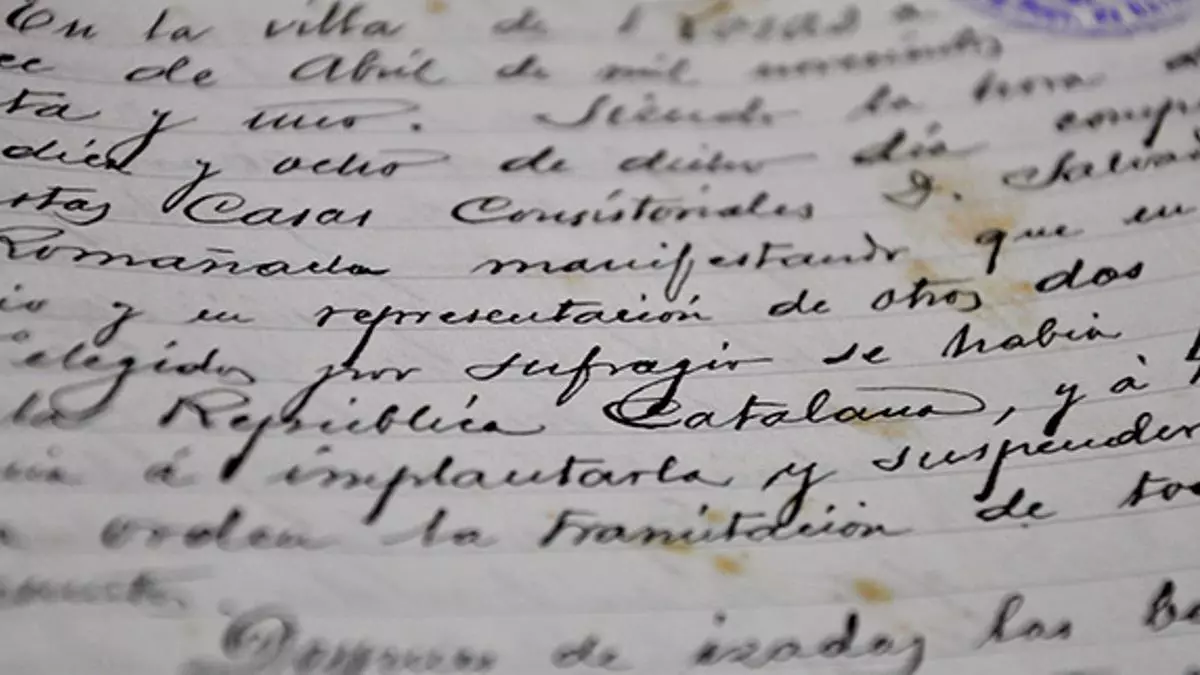 En la villa de Rosas a
de Abril de mil novecientos
ta y uno. Siendo la hora
diez y ocho de dicho día comp
stas Casas Consistoriales D. Salva
Romañach manifestando que en
io y en representación de otros dos
elegidos por sufragio se había
la República Catalana, y á
á implantarla y suspender
orden la tramitación de to
Despues de izadas las ba